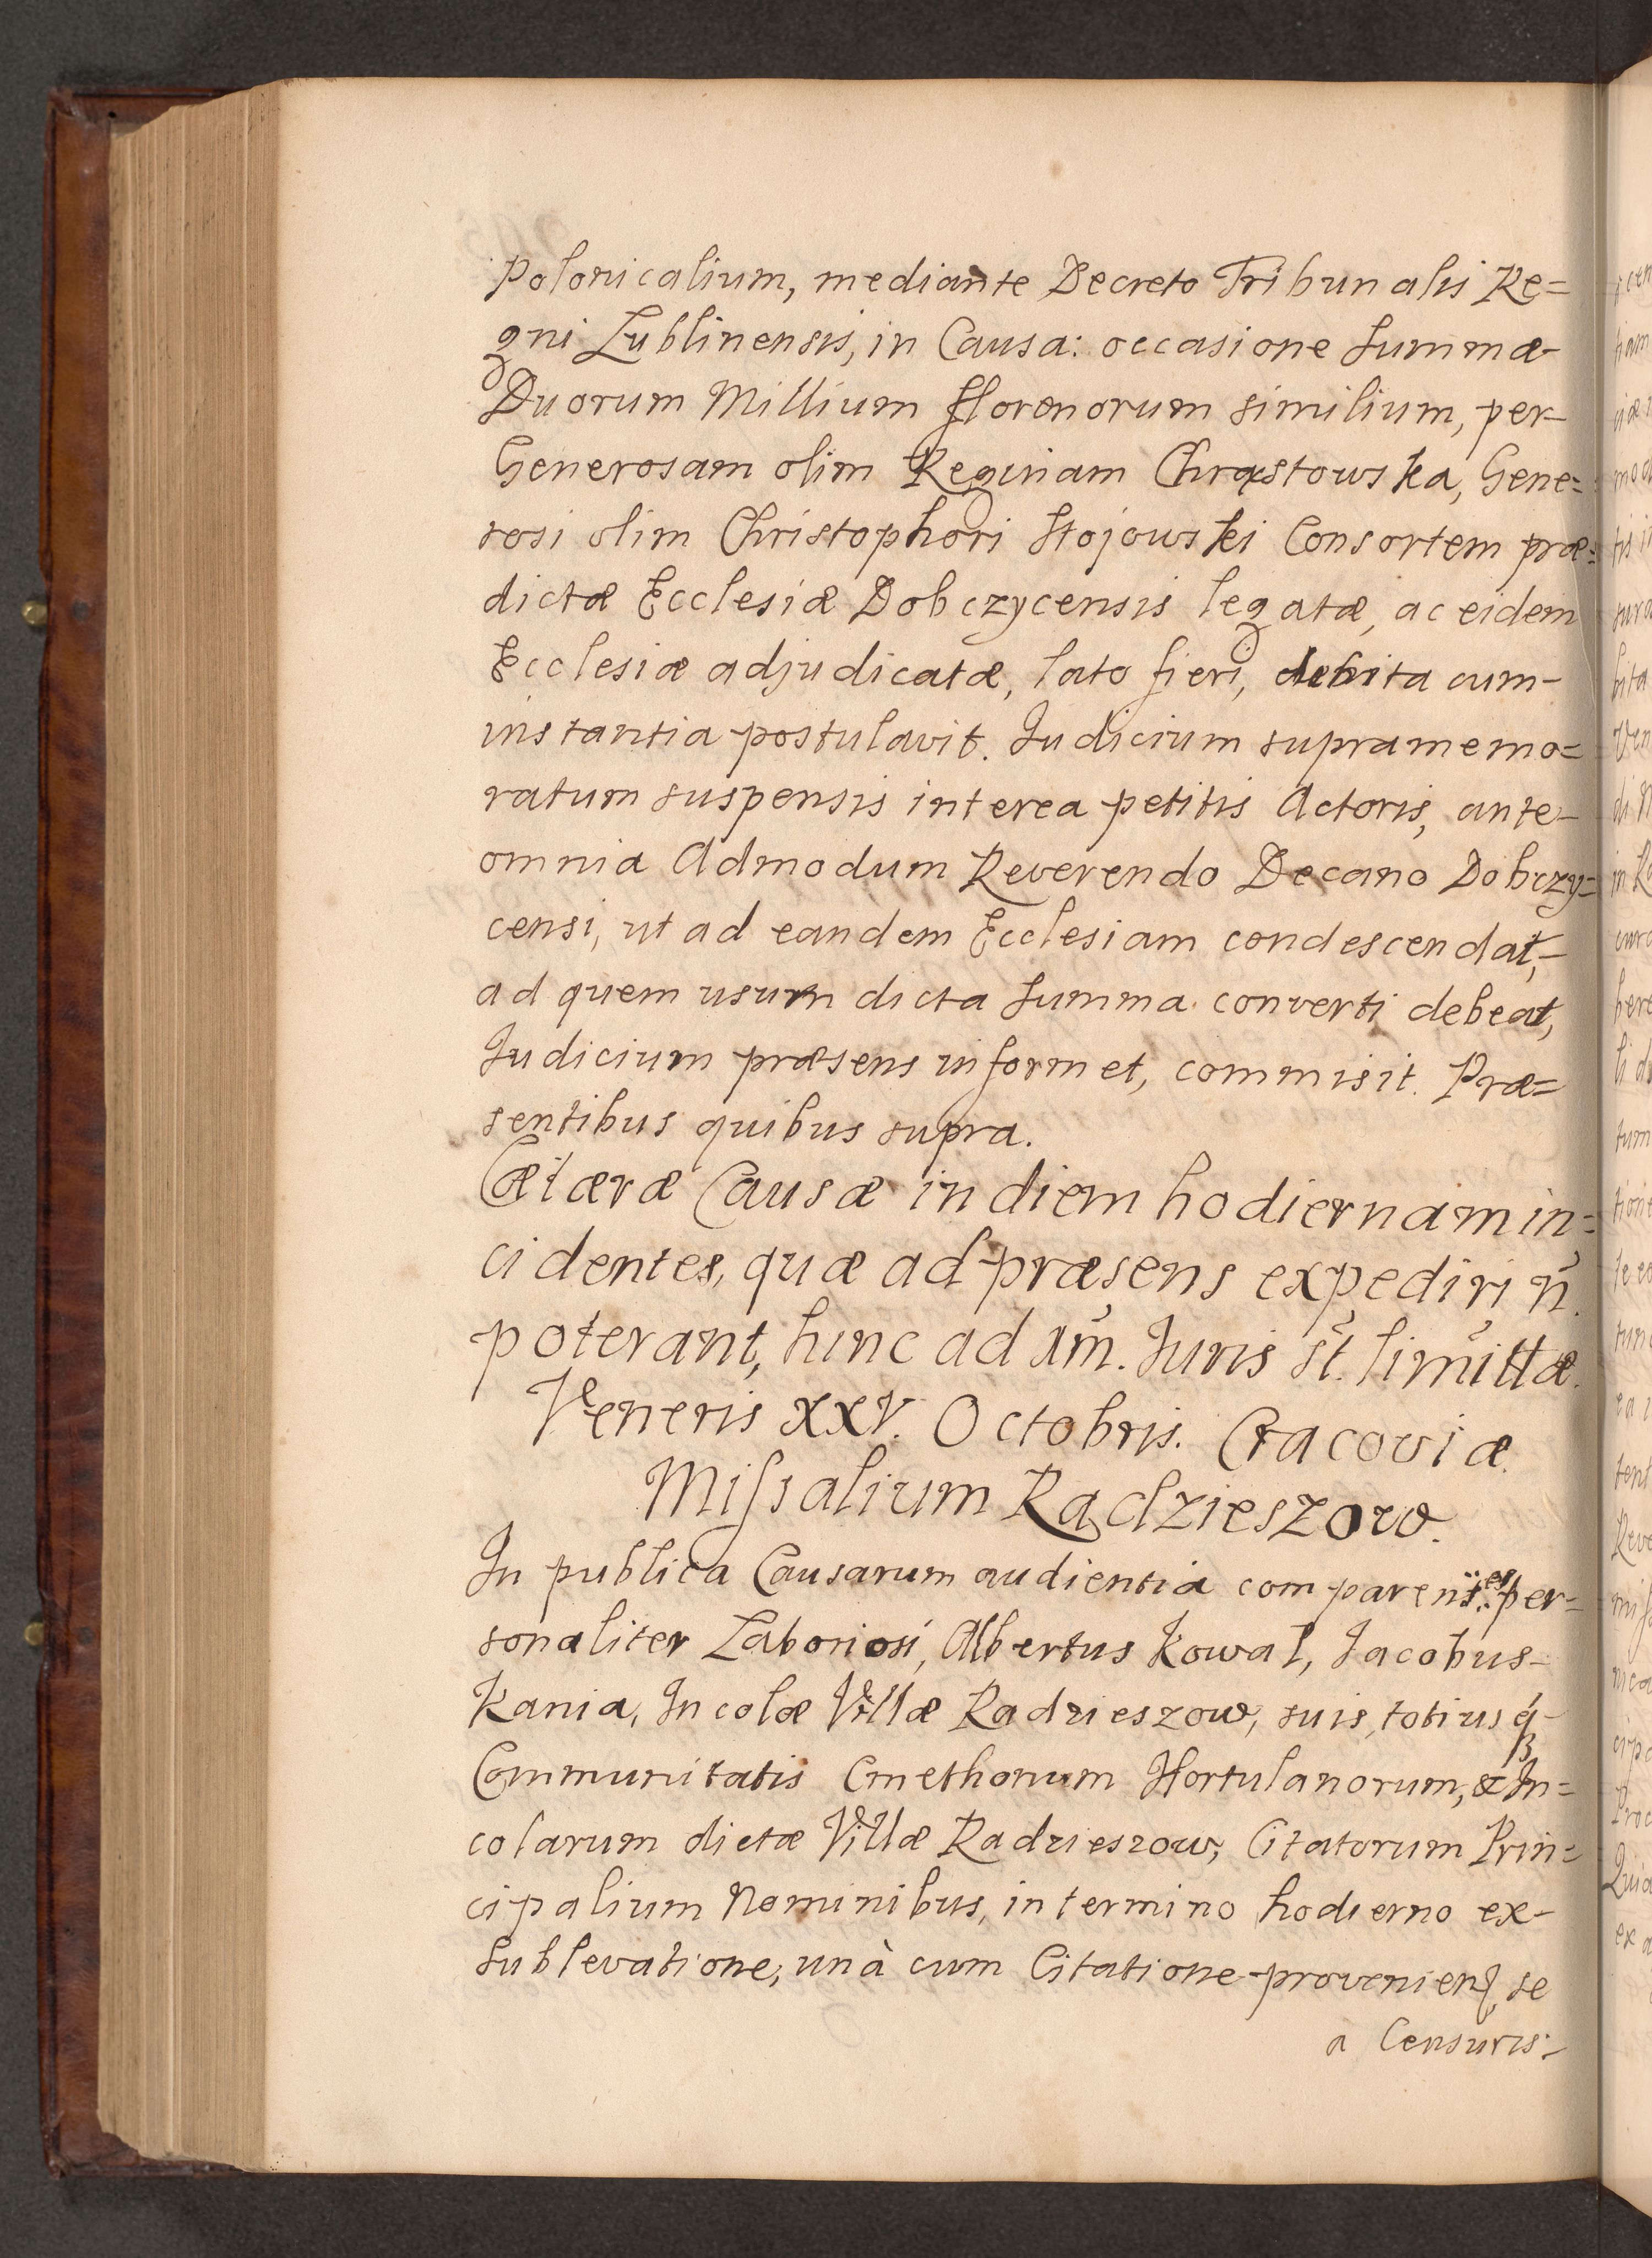 Polonicalium, mediante Decreto Tribunalis Re=
gni Lublinensis, in Causa: occasione Summæ
Duorum Millium florenorum similium, per
Generosam olim Reginam Chrąstowska, Gene=
rosi olim Christophori Stojowski Consortem præ=
dictæ Ecclesiæ Dobczycensis legatæ, ac eidem
Ecclesiæ adjudicatæ, lato fieri, debita cum
instantia postulavit. Judicium supramemo=
ratum suspensis interea petitis Actoris, ante
omnia Admodum Reverendo Decano Dobczy=
censi, ut ad eandem Ecclesiam condescendat,
ad quem usum dicta Summa converti debeat,
Judicium præsens informet, commisit. Præ=
sentibus quibus supra.
Cætæræ Causæ in diem hodiernam in=
cidentes, quæ ad præsens expediri ñ.
poterant, hinc ad im̃. Juris st̃. limĩttæ.
Veneris XXV. Octobris. Cracoviæ.
Missalium Radzieszow.
In publica Causarum audientia comparen̈s.es per=
sonaliter Laboriosi, Albertus Kowal, Jacobus
Kania, Incolæ Villæ Radzieszow, suis, totiusq
Communitatis Cmethonum Hortulanorum, & In=
colarum dictæ Villæ Radzieszow, Citatorum Prin=
cipalium Nominibus, in termino hodierno ex
Sublevatione, unà cum Citatione provenien, se
a Censuris.